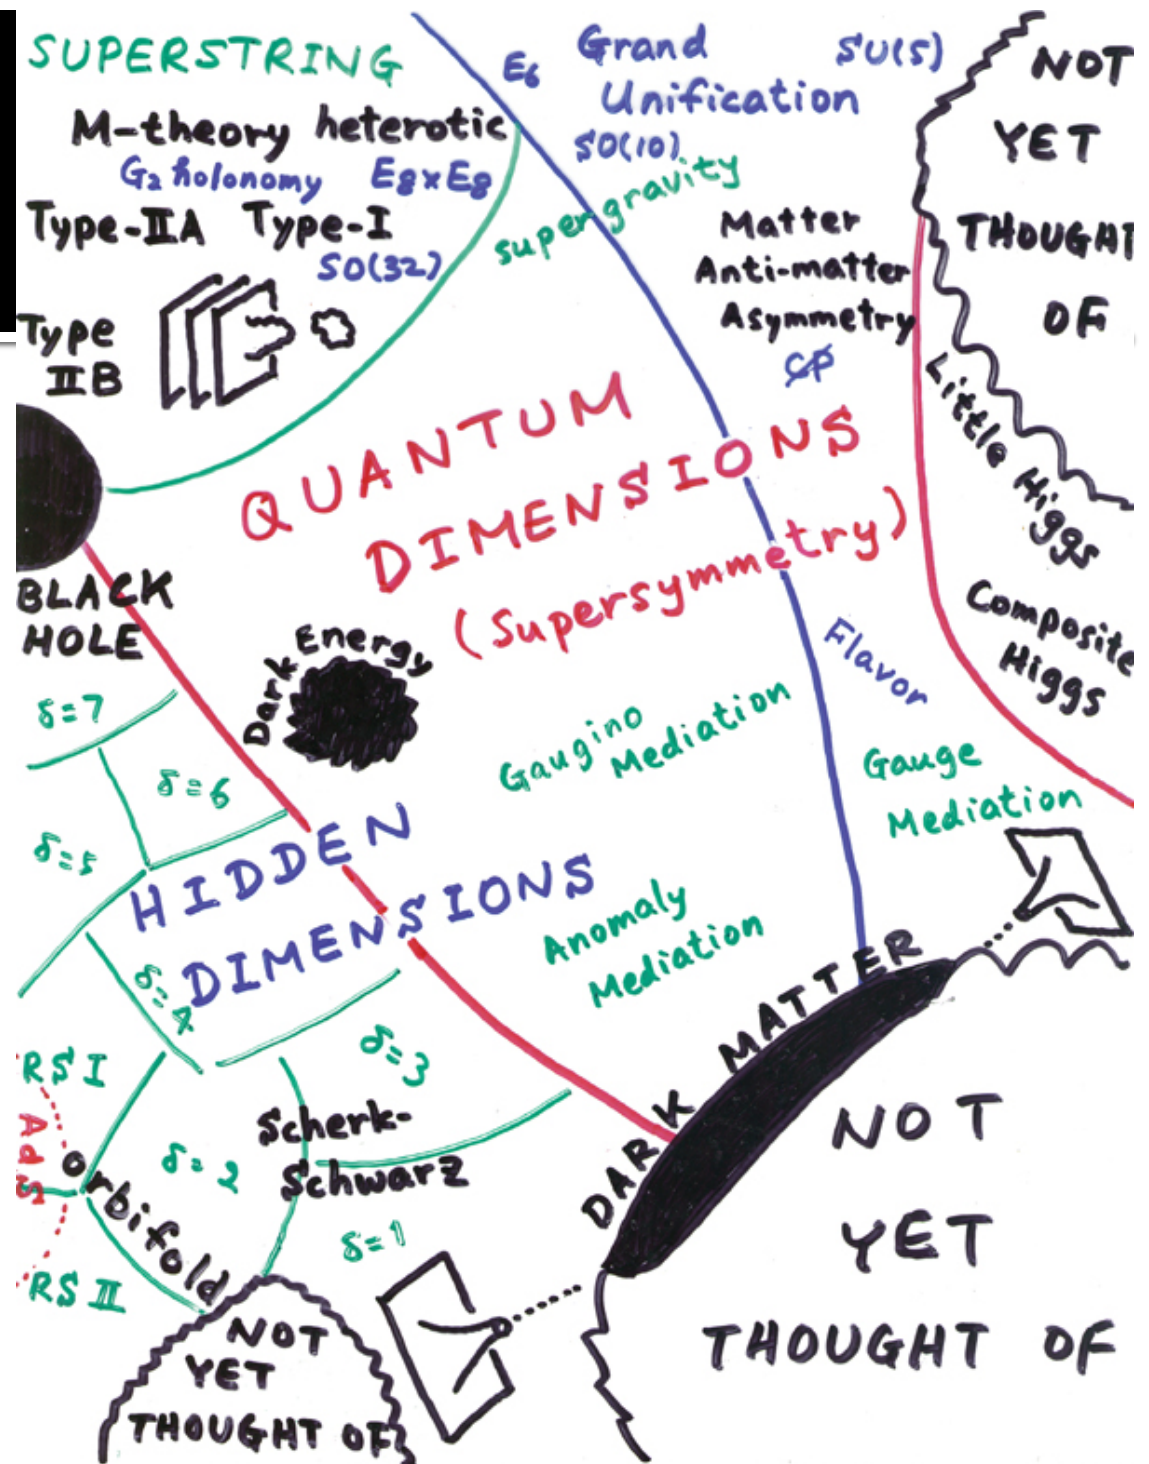 SUPERSTRING
M-theory heterotic
G2 holonomy E8xE8
Type-IIA Type-I
SO(32)
Type
IIB
E6
Grand
Unification
SU(5)
SO(10)
supergravity
Matter
Anti-matter
Asymmetry
CP
NOT
YET
THOUGHT
OF
Little Higgs
Composite
Higgs
QUANTUM
DIMENSIONS
(Supersymmetry)
BLACK
HOLE
Dark Energy
Flavor
Gaugino
Mediation
Gauge
Mediation
Anomaly
Mediation
δ=7
δ=6
δ=5
HIDDEN
DIMENSIONS
δ=4
δ=3
RS I
AdS
Orbifold
δ=2
Scherk-
Schwarz
RS II
δ=1
DARK MATTER
NOT
YET
THOUGHT OF
NOT
YET
THOUGHT OF